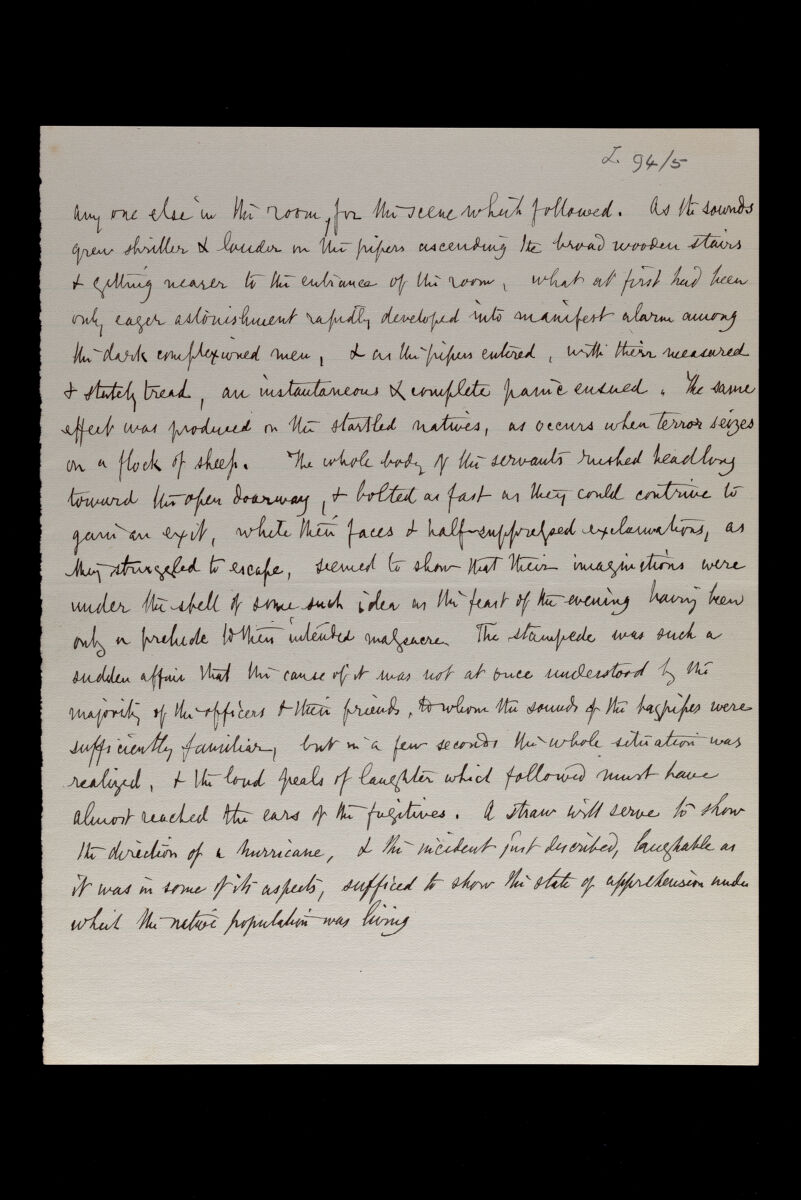 L. 94/5
any one else in the room, for the scene which followed. As the sounds
grew shriller & louder on the pipers ascending the broad wooden stairs
& getting nearer to the entrance of the room, what at first had been
only eager astonishment rapidly developed into manifest alarm among
the dark complexioned men, & as the pipers entered, with their measured
& stately tread, an instantaneous & complete panic ensued. The same
effect was produced on the startled natives, as occurs when terror seizes
on a flock of sheep. The whole body of the servants rushed headlong
toward the open doorway, & bolted as fast as they could contrive to
gain an exit, while their faces & half-suppressed exclamations, as
they struggled to escape, seemed to show that their imaginations were
under the spell of some such idea as the feast of the evening having been
only a prelude to their intended massacre. The stampede was such a
sudden affair that the cause of it was not at once understood by the
majority of the officers & their friends, to whom the sounds of the bagpipes were
sufficiently familiar, but in a few seconds the whole situation was
realized, & the loud peals of laughter which followed must have
almost reached the ears of the fugitives. A straw will serve to show
the direction of a hurricane, & the incident just described, laughable as
it was in some of its aspects, sufficed to show the state of apprehension under
which the native population was living